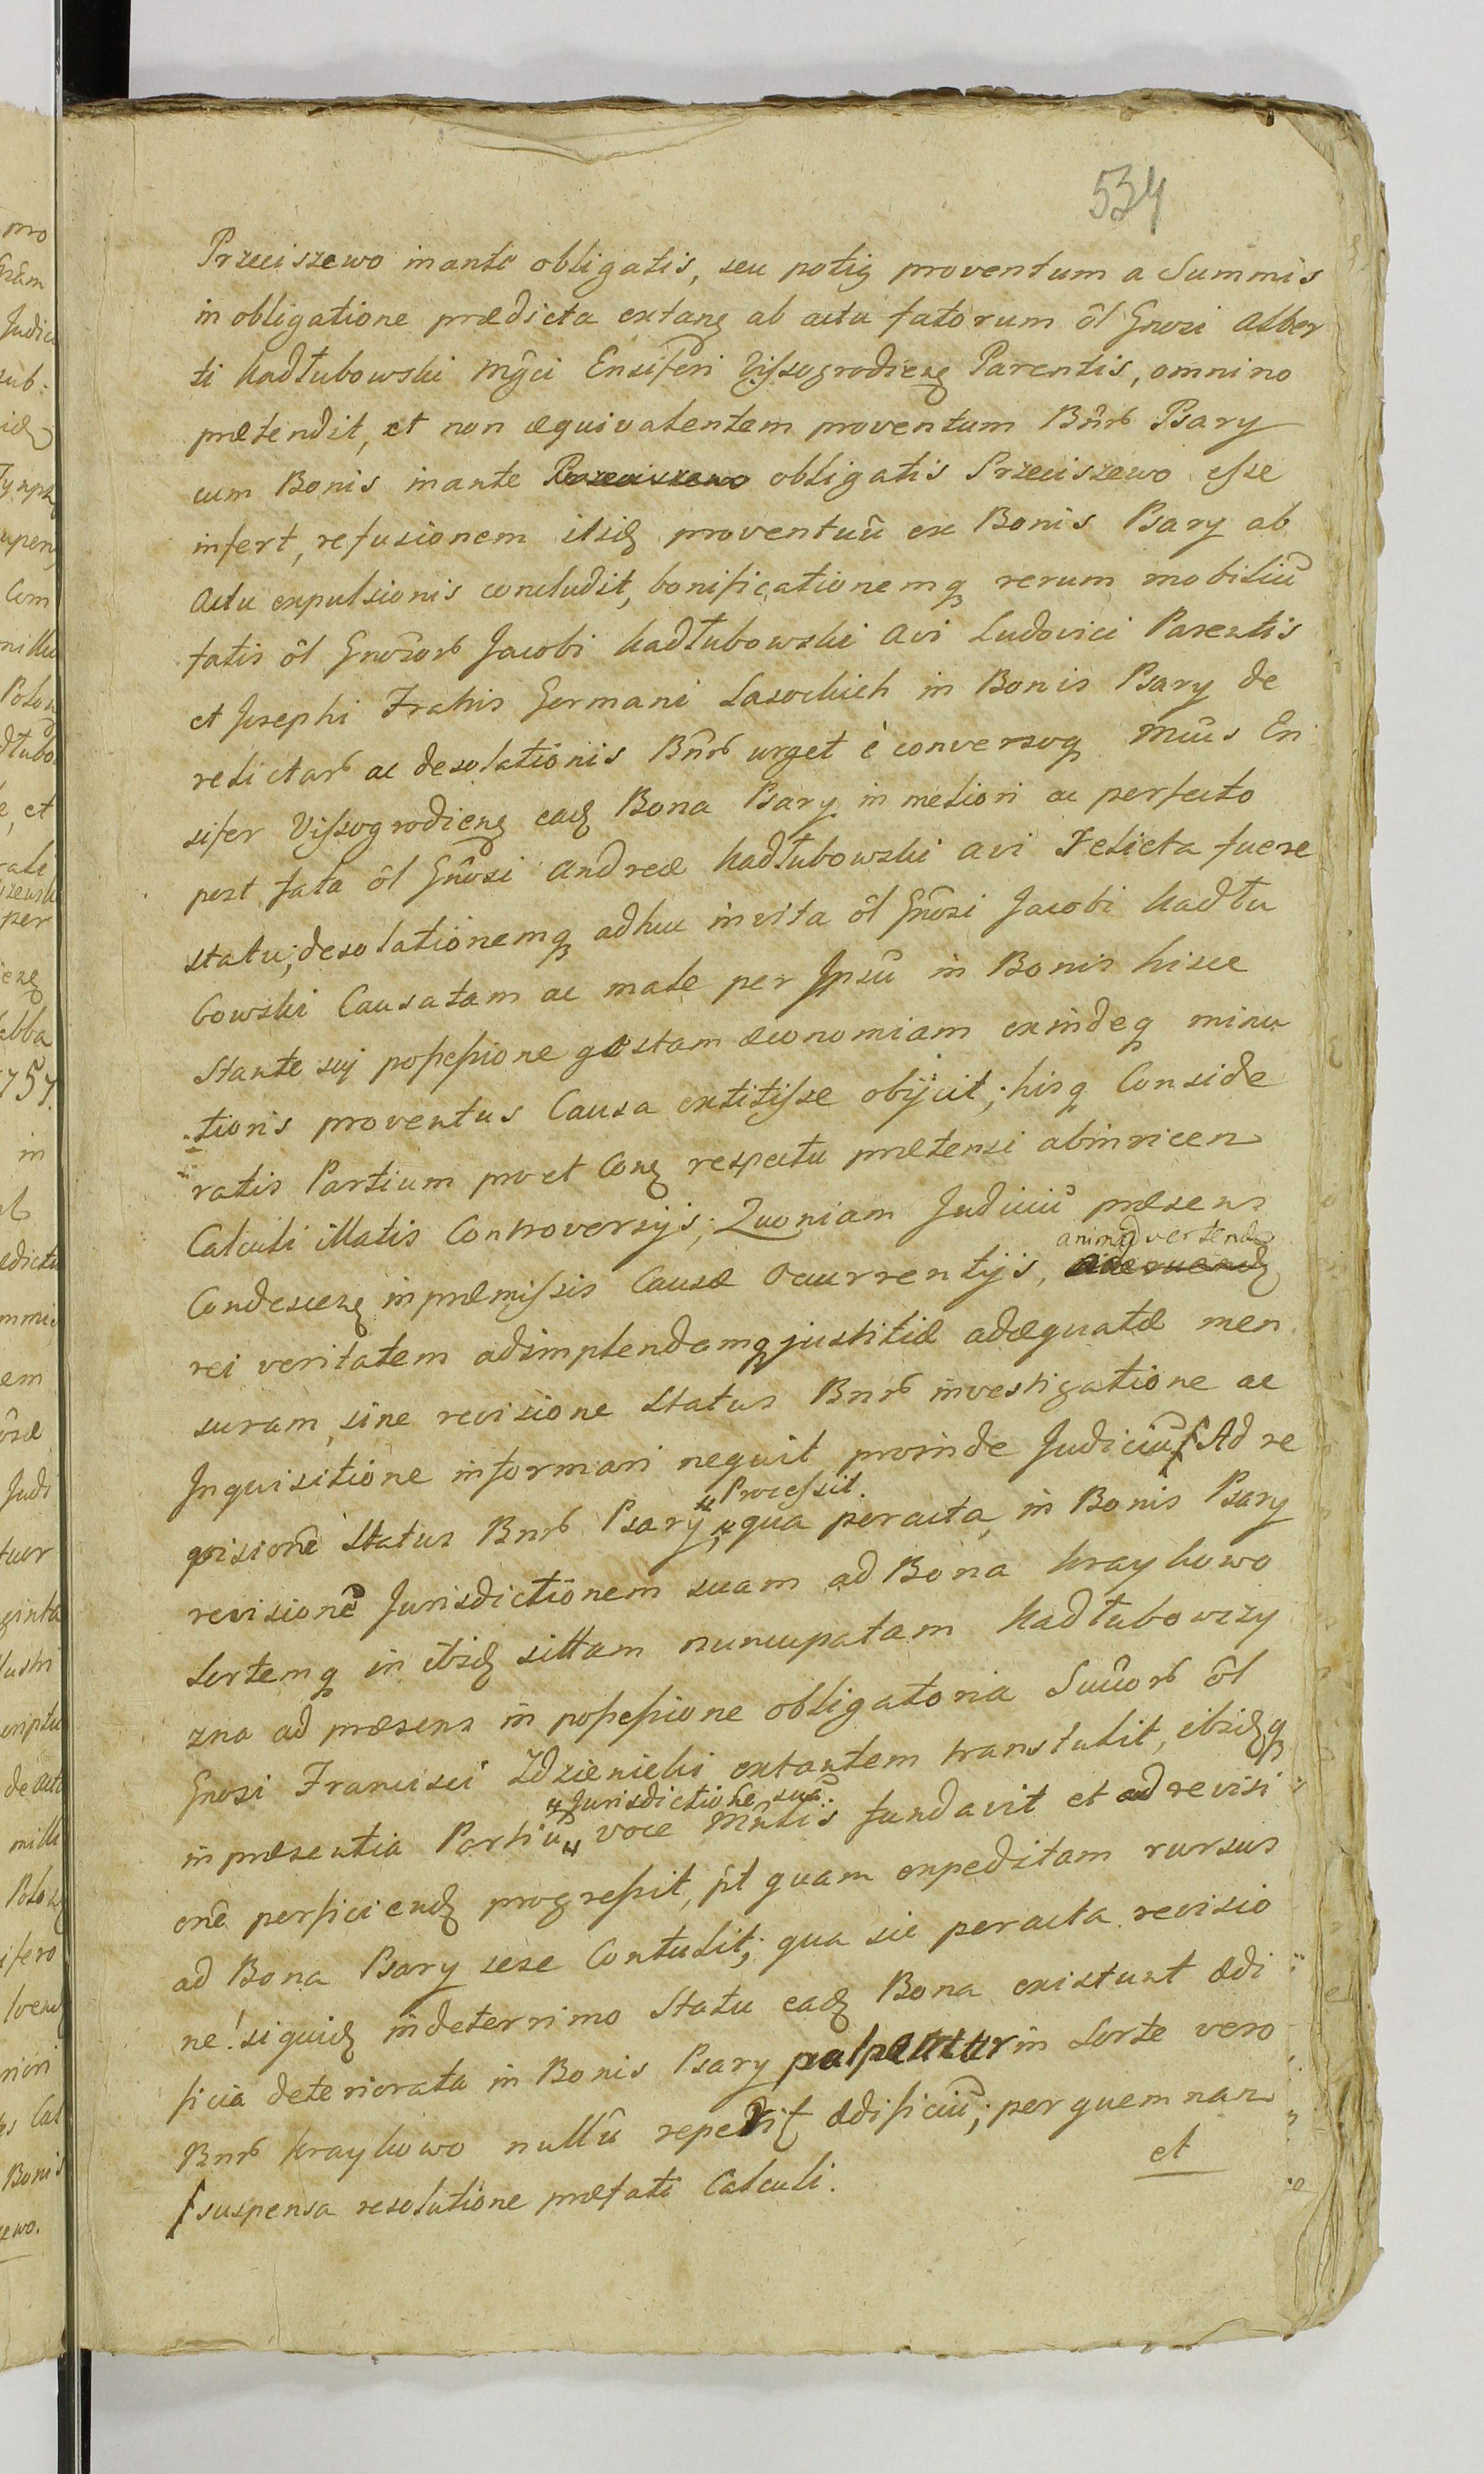 534
Przeciszewo inante obligatis, seu potiq proventum a Summis
in obligatione prædicta extanq ab actu fatorum ol Gnosi Alber
ti Kadłubowski Mgci Ensiferi Vissogrodienq Parentis, omnino
prætendit, et non æquivalentem proventum Bnrb Psary
cum Bonis inante Przeciszewo obligatis Przeciszewo esse
infert, refusionem itidq proventuũ ex Bonis Psary ab
Actu expulsionis concludit, bonificationemq rerum mobiliũ
fatis ol Gnosorb Jacobi Kadłubowski Avi Ludovici Parentis
et Josephi Fratris Germani Lasockich in Bonis Psary de
relictarb ac desolationis Bnrb urget è conversoq Mcus En
sifer Vissogrodienq eadq Bona Psary in meliori ac perfecto
post fata ol Gnosi Andreæ Kadłubowski Avi relicta fuere
statu, desolationemq adhuc invita ol Gnosi Jacobi Kadłu
bowski Causatam ac male per Ipsũ in Bonis hisce
Stante sui possessione gestam æconomiam exindeq minu
tionis proventus Causa extitisse obijcit; hisq Conside
ratis Partium pro et Conq respectu prætensi abinvicem
Calculi illatis Controversijs; Quoniam Judiciũ præsens
animadvertendo
Condescenq inpræmissis Causæ Occurrentijs,
rei veritatem adimplendamq justitiæ adæquatæ men
suram, sine revisione Status Bnrb investigatione ac
Inquisitione informari nequit proinde Judiciũ Ad re
Processit.
visionẽ Status Bnrb Psary, qua peracta, in Bonis Psary
revisionẽ Jurisdictionem suam ad Bona Kraykowo
Sortemq in ibidq sittam nuncupatam Kadłubowszy
zna ad præsens in possessione obligatoria Suuorb ol
Gnosi Francisci Zdzienicki extantem transtulit, ibidqq
Jurisdictionẽ suã
inpræsentia Partiũ voce Mntis fundavit et ad revisi
onẽ perficiendq progressit, pt quam expeditam rursus
ad Bona Psary sese Contulit; qua sic peracta revisio
ne! siquidq indeterrimo Statu eadq Bona existunt ædi
ficia deteriorata in Bonis Psary palpantur in Sorte vero
Bnrb Kraykowo nullũ reperit ædificiũ; per quem nan
et
suspensa resolutione præfati Calculi.